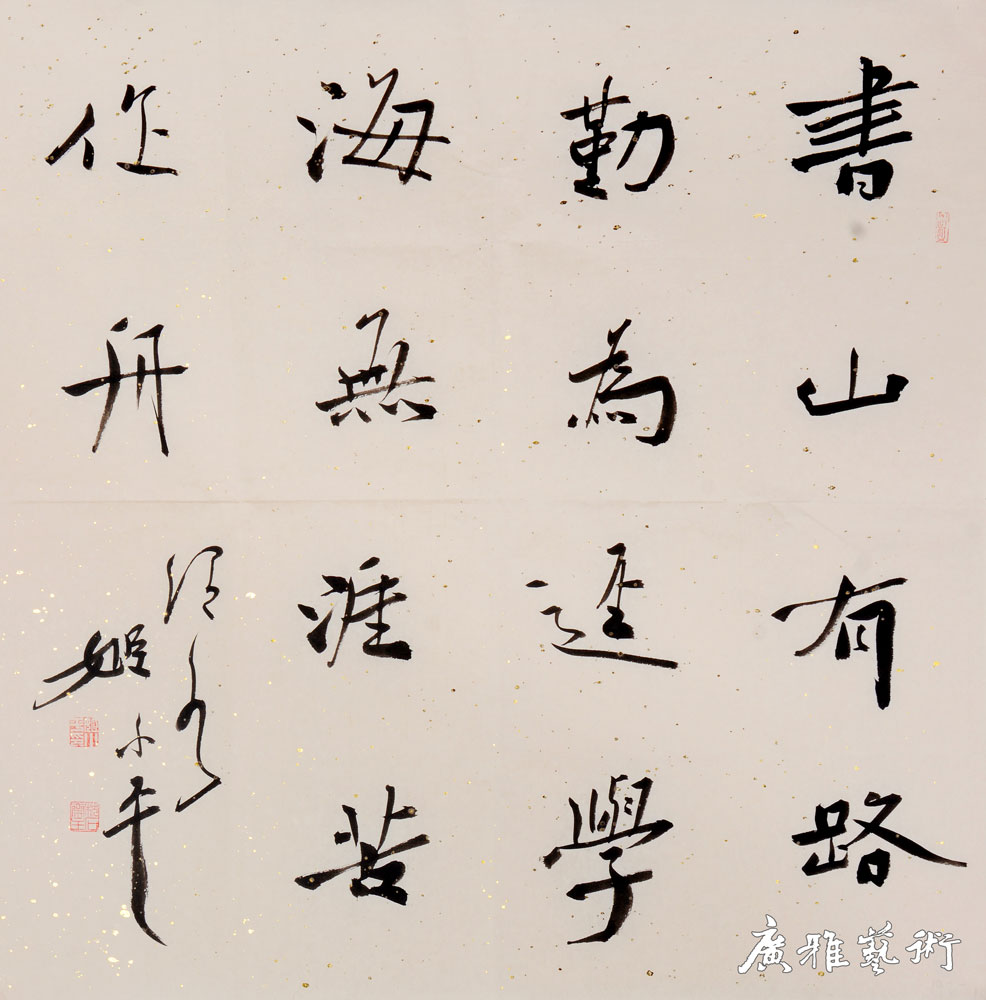 書山有路
勤為逕學
海無涯苦
作舟
姬小平
廣雅藝術